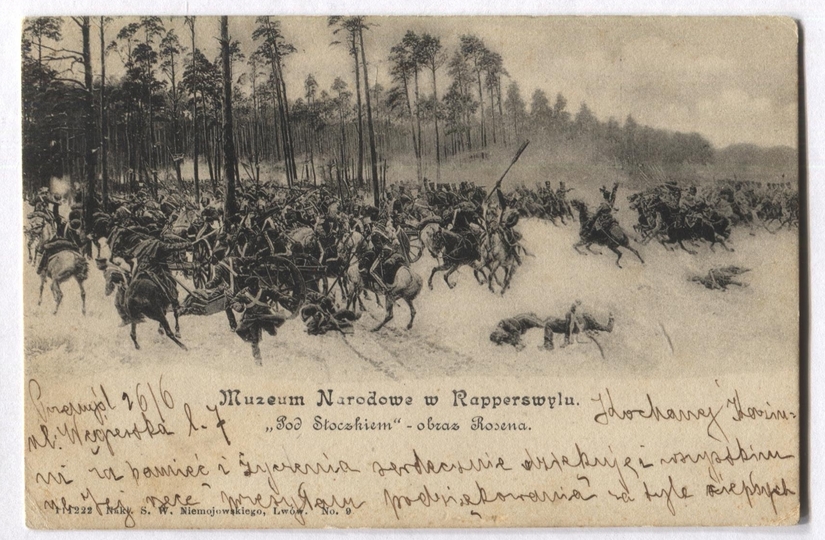 Muzeum Narodowe w Rapperswylu.
„Pod Stoczkiem“ - obraz Rosena.
Przemyśl 26/6
ul. Węgierska l. 7
Kochanej Kozin-
ni za pamięć i życzenia serdecznie dziękuję i wszystkim
na Jej ręce przesyłam podziękowania za tyle ciepłych
Nakł. S. W. Niemojowskiego, Lwów. No. 9